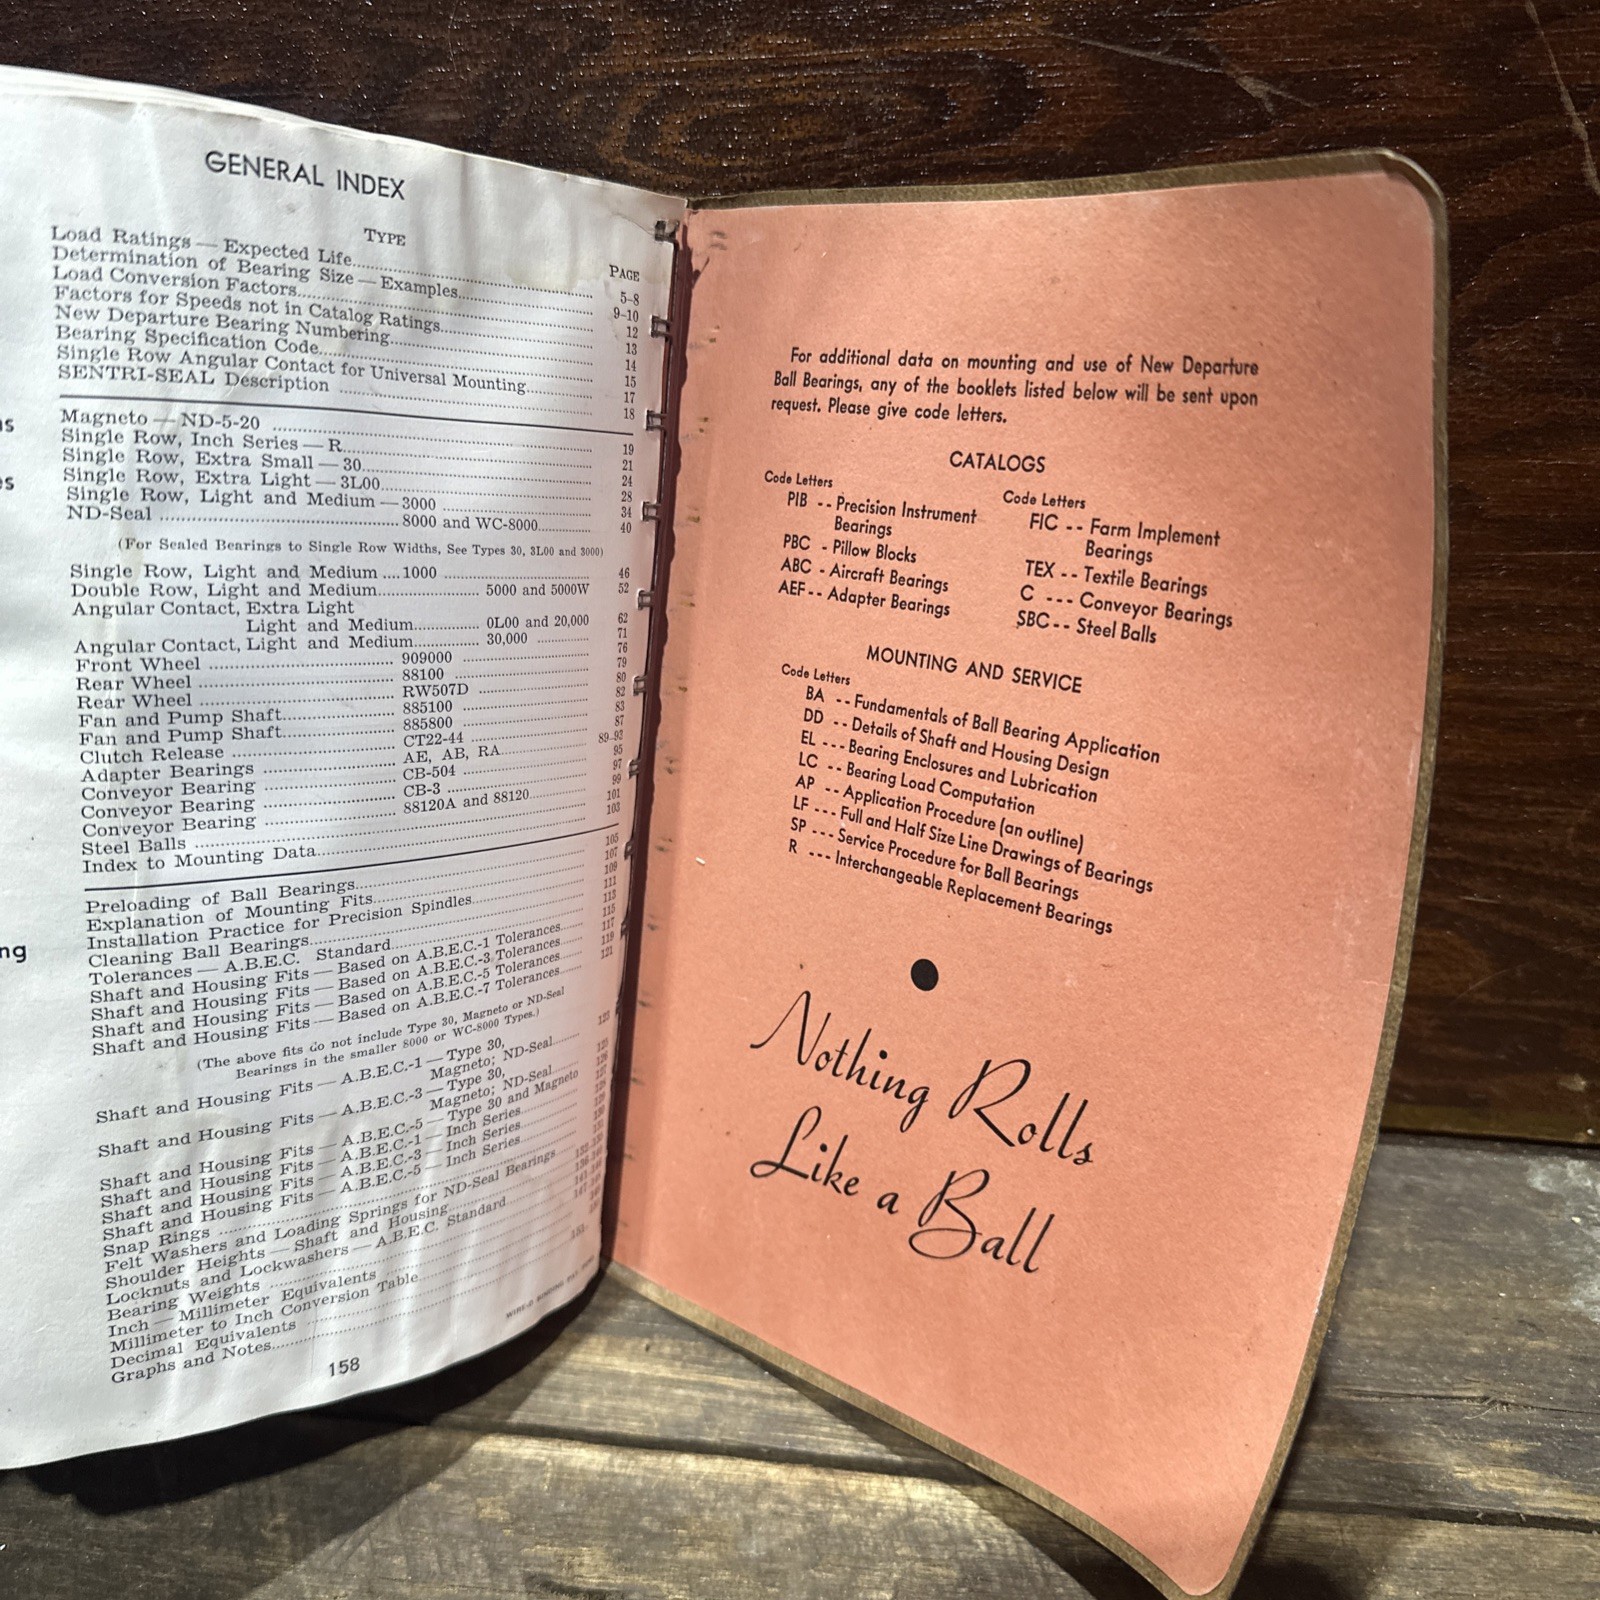 ng
GENERAL INDEX
TYPE PAGE
Load Ratings — Expected Life 5-8
Determination of Bearing Size — Examples 9-10
Load Conversion Factors 12
Factors for Speeds not in Catalog Ratings 13
New Departure Bearing Numbering 14
Bearing Specification Code 15
Single Row Angular Contact for Universal Mounting 17
SENTRI-SEAL Description 18
Magneto — ND-5-20 19
Single Row, Inch Series — R 21
Single Row, Extra Small — 30 24
Single Row, Extra Light — 3L00 28
Single Row, Light and Medium — 3000 34
ND-Seal 8000 and WC-8000 40
(For Sealed Bearings to Single Row Widths, See Types 30, 3L00 and 3000)
Single Row, Light and Medium 1000 46
Double Row, Light and Medium 5000 and 5000W 52
Angular Contact, Extra Light
Light and Medium 0L00 and 20,000 62
Angular Contact, Light and Medium 30,000 71
Front Wheel 909000 76
Rear Wheel 88100 79
Rear Wheel RW507D 80
Fan and Pump Shaft 885100 82
Fan and Pump Shaft 885800 83
Clutch Release CT22-44 87
Adapter Bearings AE, AB, RA 89-93
Conveyor Bearing CB-504 95
Conveyor Bearing CB-3 97
Conveyor Bearing 88120A and 88120 99
Steel Balls 101
Index to Mounting Data 103
Preloading of Ball Bearings 105
Explanation of Mounting Fits 107
Installation Practice for Precision Spindles 109
Cleaning Ball Bearings 111
Tolerances — A.B.E.C. Standard 113
Shaft and Housing Fits — Based on A.B.E.C.-1 Tolerances 115
Shaft and Housing Fits — Based on A.B.E.C.-3 Tolerances 117
Shaft and Housing Fits — Based on A.B.E.C.-5 Tolerances 119
Shaft and Housing Fits — Based on A.B.E.C.-7 Tolerances 121
(The above fits do not include Type 30, Magneto or ND-Seal
Bearings in the smaller 8000 or WC-8000 Types.)
Shaft and Housing Fits — A.B.E.C.-1 — Type 30,
Magneto; ND-Seal
Shaft and Housing Fits — A.B.E.C.-3 — Type 30,
Magneto; ND-Seal
Shaft and Housing Fits — A.B.E.C.-5 — Type 30 and Magneto
Shaft and Housing Fits — A.B.E.C.-1 — Inch Series
Shaft and Housing Fits — A.B.E.C.-3 — Inch Series
Shaft and Housing Fits — A.B.E.C.-5 — Inch Series
Snap Rings
Felt Washers and Loading Springs for ND-Seal Bearings
Shoulder Heights — Shaft and Housing
Locknuts and Lockwashers — A.B.E.C. Standard
Bearing Weights
Inch — Millimeter Equivalents
Millimeter to Inch Conversion Table
Decimal Equivalents
Graphs and Notes
158
For additional data on mounting and use of New Departure
Ball Bearings, any of the booklets listed below will be sent upon
request. Please give code letters.
CATALOGS
Code Letters
PIB -- Precision Instrument
Bearings
PBC - Pillow Blocks
ABC - Aircraft Bearings
AEF -- Adapter Bearings
Code Letters
FIC -- Farm Implement
Bearings
TEX -- Textile Bearings
C --- Conveyor Bearings
SBC -- Steel Balls
MOUNTING AND SERVICE
Code Letters
BA -- Fundamentals of Ball Bearing Application
DD -- Details of Shaft and Housing Design
EL --- Bearing Enclosures and Lubrication
LC -- Bearing Load Computation
AP -- Application Procedure (an outline)
LF --- Full and Half Size Line Drawings of Bearings
SP --- Service Procedure for Ball Bearings
R --- Interchangeable Replacement Bearings
Nothing Rolls
Like a Ball